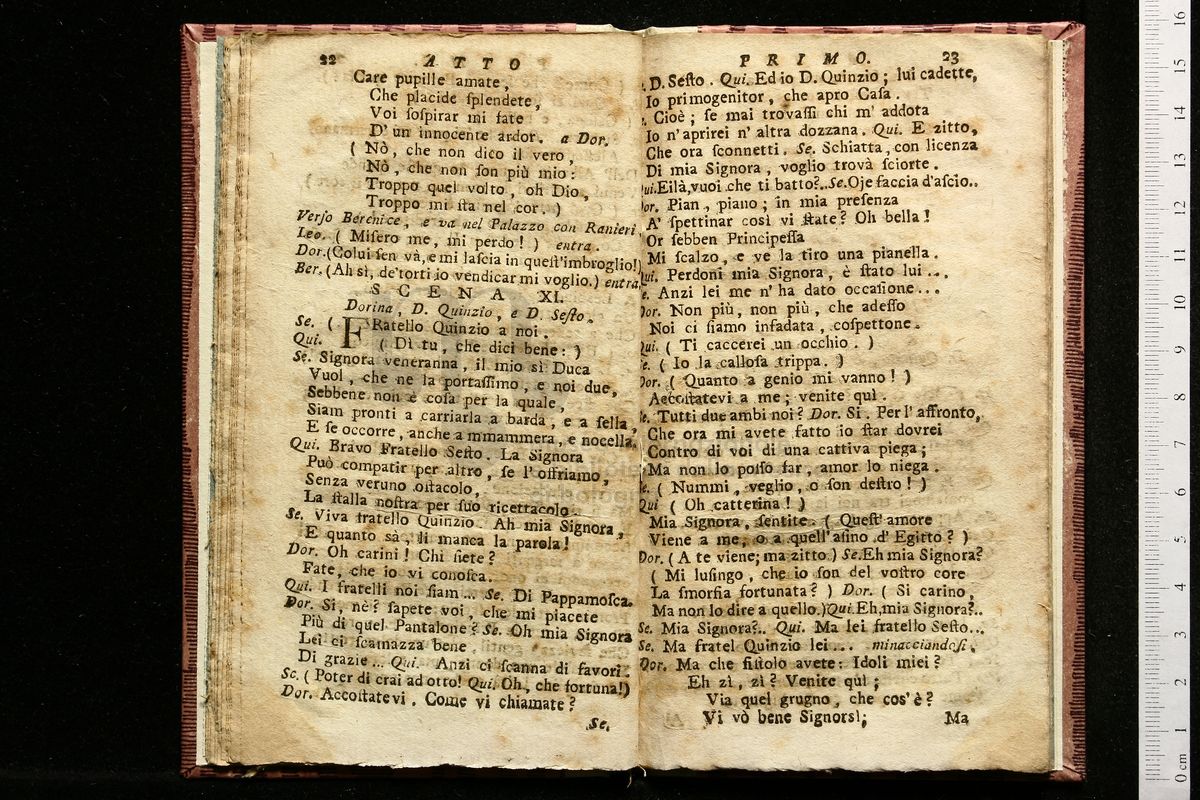 22 ATTO
Care pupille amate,
Che placide ſplendete,
Voi ſoſpirar mi fate
D' un innocente ardor. a Dor.
( Nò, che non dico il vero,
Nò, che non ſon più mio:
Troppo quel volto, oh Dio,
Troppo mi ſta nel cor. )
Verſo Berenice, e va nel Palazzo con Ranieri,
Leo. ( Miſero me, mi perdo! ) entra.
Dor. (Colui ſen và, e mi laſcia in queſt'imbroglio!)
Ber. (Ah sì, de' torti io vendicar mi voglio.) entra.
SCENA XI.
Dorina, D. Quinzio, e D. Seſto.
Se. ( FRatello Quinzio a noi.
Qui. ( Di tu, che dici bene: )
Se. Signora veneranna, il mio sì Duca
Vuol, che ne la portaſſimo, e noi due,
Sebbene non è coſa per la quale,
Siam pronti a carriarla a barda, e a ſella,
E ſe occorre, anche a mmammera, e nocella.
Qui. Bravo Fratello Seſto. La Signora
Può compatir per altro, ſe l' offriamo,
Senza veruno oſtacolo,
La ſtalla noſtra per ſuo ricettacolo.
Se. Viva fratello Quinzio. Ah mia Signora,
E quanto sà, li manca la parola!
Dor. Oh carini! Chi ſiete?
Fate, che io vi conoſca.
Qui. I fratelli noi ſiam... Se. Di Pappamoſca.
Dor. Sì, nè? ſapete voi, che mi piacete
Più di quel Pantalone? Se. Oh mia Signora
Lei ci ſcamazza bene.
Di grazie... Qui. Anzi ci ſcanna di favori.
Se. ( Poter di crai ad otto! Qui. Oh, che fortuna!)
Dor. Accoſtatevi. Come vi chiamate?
Se.
PRIMO. 23
D. Seſto. Qui. Ed io D. Quinzio; lui cadette,
Io primogenitor, che apro Caſa.
Cioè; ſe mai trovaſſi chi m' addota
Io n' aprirei n' altra dozzana. Qui. E zitto,
Che ora ſconnetti. Se. Schiatta, con licenza
Di mia Signora, voglio trovà ſciorte.
Qui. Eilà, vuoi che ti batto?.. Se. Oje faccia d'aſcio..
Dor. Pian, piano; in mia preſenza
A' ſpettinar così vi ſtate? Oh bella!
Or ſebben Principeſſa
Mi ſcalzo, e ve la tiro una pianella.
Qui. Perdoni mia Signora, è ſtato lui...
Se. Anzi lei me n' ha dato occaſione...
Dor. Non più, non più, che adeſſo
Noi ci ſiamo infadata, coſpettone.
Qui. ( Ti caccerei un occhio. )
Se. ( Io la calloſa trippa. )
Dor. ( Quanto a genio mi vanno! )
Accoſtatevi a me; venite quì.
Se. Tutti due ambi noi? Dor. Si. Per l' affronto,
Che ora mi avete fatto io ſtar dovrei
Contro di voi di una cattiva piega;
Ma non lo poſſo far, amor lo niega.
Se. ( Nummi, veglio, o ſon deſtro! )
Qui ( Oh catterina! )
Mia Signora, ſentite. ( Queſt' amore
Viene a me, o a quell' aſino d' Egitto? )
Dor. ( A te viene; ma zitto ) Se. Eh mia Signora?
( Mi luſingo, che io ſon del voſtro core
La ſmorfia fortunata? ) Dor. ( Si carino,
Ma non lo dire a quello.) Qui. Eh, mia Signora?..
Se. Mia Signora?.. Qui. Ma lei fratello Seſto...
Se. Ma fratel Quinzio lei... minacciandoſi.
Dor. Ma che fiſtolo avete: Idoli miei?
Eh zì, zì? Venite quì;
Via quel grugno, che cos' è?
Vi vò bene Signorsì; Ma